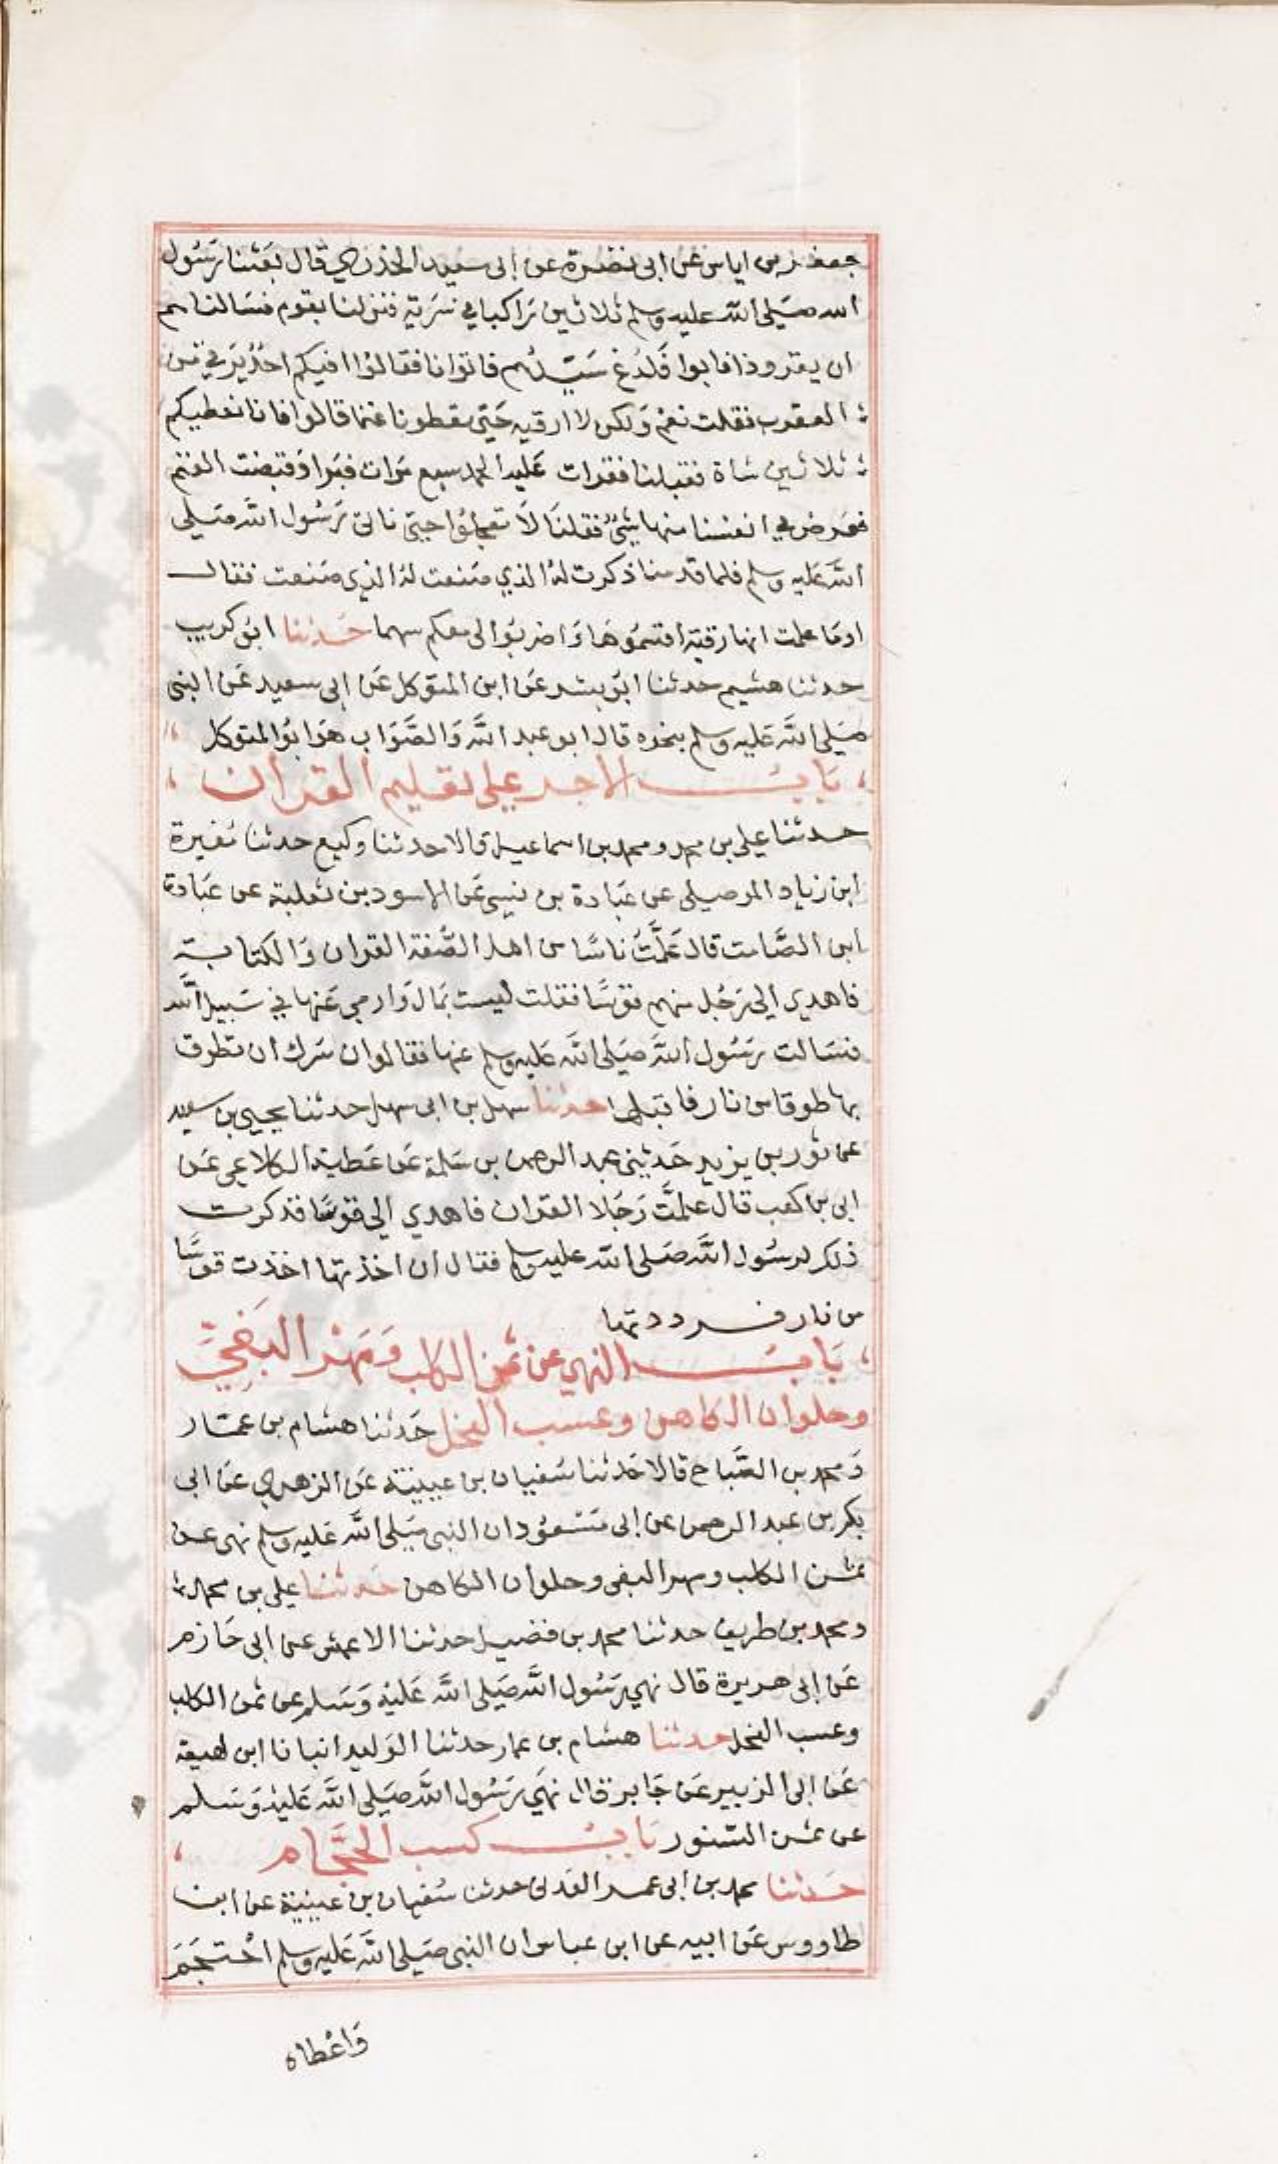 جعفر بن اياس عن ابى نضرة عن ابى سعيد الخدري قال بعثنا رسول
الله صلى الله عليه وسلم ثلاثين راكبا في سرية فنزلنا بقوم فسالناهم
ان يقرونا فابوا فلدغ سيدهم فاتوانا فقالوا افيكم احد يرقي من
العقرب فقلت نعم ولكن لا ارقيه حتى تعطونا غنما قالوا فانا نعطيكم
ثلاثين شاة فقبلنا فقرات عليه الحمد سبع مرات فبرا وقبضت الغنم
فعرض في انفسنا منها شئ فقلنا لا تعجلوا حتى ناتى رسول الله صلى
الله عليه وسلم فلما قدمنا ذكرت له الذي صنعت له الذي صنعت فقال
اوما علمت انها رقية اقتسموها واضربوا لى معكم سهما حدثنا ابو كريب
حدثنا هشيم حدثنا ابو بشر عن ابن المتوكل عن ابى سعيد عن النبى
صلى الله عليه وسلم بنحوه قال ابو عبد الله والصواب هو ابو المتوكل
باب الاجر على تعليم القران
حدثنا على بن محمد ومحمد بن اسماعيل قالا حدثنا وكيع حدثنا مغيرة
ابن زياد الموصيلى عن عبادة بن نسي عن الاسود بن ثعلبة عن عبادة
ابن الصامت قال علمت ناسا من اهل الصفة القران والكتابة
فاهدى الى رجل منهم قوسا فقلت ليست بمال وارمي عنها في سبيل الله
فسالت رسول الله صلى الله عليه وسلم عنها فقال وان سرك ان تطوق
بها طوقا من نار فاقبلها حدثنا سهل بن ابى سهل حدثنا يحيى بن سعيد
عن ثور بن يزيد حدثنى عبد الرحمن بن سلمة عن عطية الكلاعى عن
ابى بن كعب قال علمت رجلا القران فاهدي الى قوسا فذكرت
ذلك لرسول الله صلى الله عليه وسلم فقال ان اخذتها اخذت قوسا
من نار فرددتها
باب النهي عن ثمن الكلب ومهر البغي
وحلوان الكاهن وعسب الفحل حدثنا هشام بن عمار
ومحمد بن الصباح قالا حدثنا سفيان بن عيينة عن الزهري عن ابى
بكر بن عبد الرحمن عن ابى مسعود ان النبى صلى الله عليه وسلم نهى عن
ثمن الكلب ومهر البغى وحلوان الكاهن حدثنا على بن محمد
ومحمد بن طريف حدثنا محمد بن فضيل حدثنا الاعمش عن ابى حازم
عن ابى هريرة قال نهي رسول الله صلى الله عليه وسلم عن ثمن الكلب
وعسب الفحل حدثنا هشام بن عمار حدثنا الوليد انبانا ابن لهيعة
عن ابى الزبير عن جابر قال نهى رسول الله صلى الله عليه وسلم
عن ثمن السنور باب كسب الحجام
حدثنا محمد بن ابى عمر العدنى حدثنا سفيان بن عيينة عن ابن
طاووس عن ابيه عن ابن عباس ان النبى صلى الله عليه وسلم احتجم
واعطاه